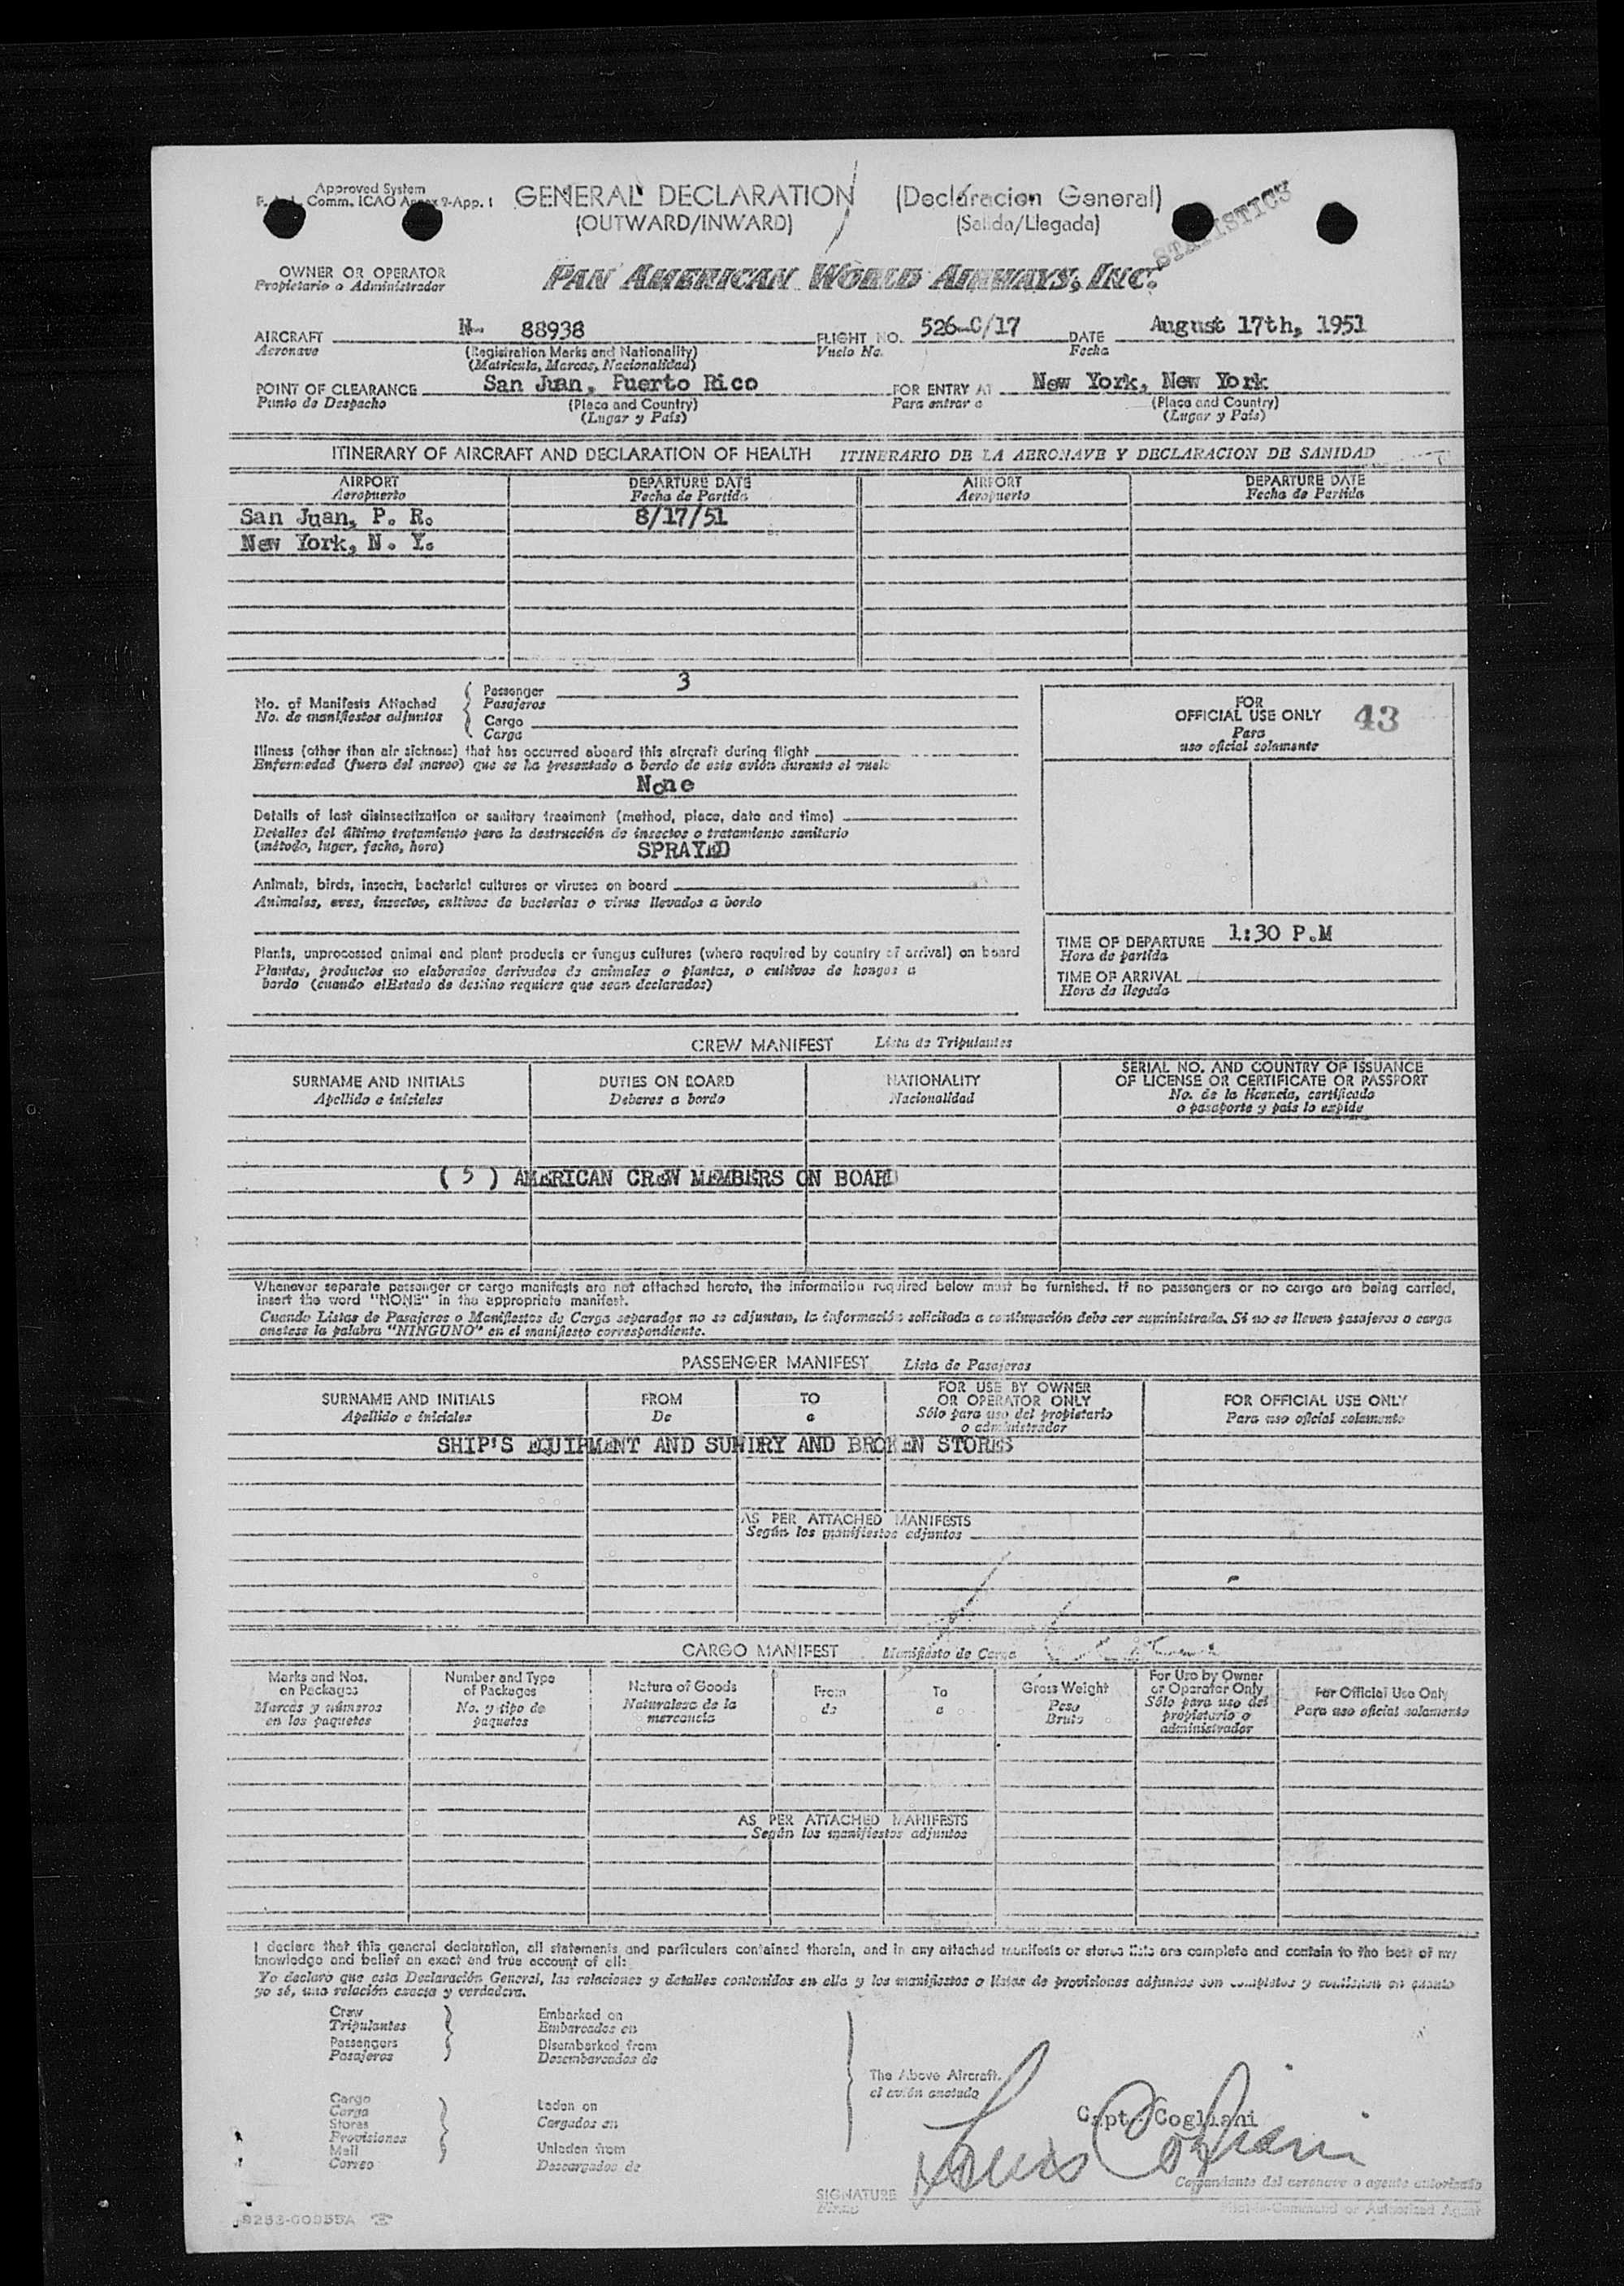 Approved System
Comm. ICAO Annex 9-App. 1
GENERAL DECLARATION (Declaracion General)
(OUTWARD/INWARD) (Salida/Llegada)
STATISTICS
OWNER OR OPERATOR
Propietario o Administrador
PAN AMERICAN WORLD AIRWAYS, INC.
AIRCRAFT N- 88938 FLIGHT NO. 526-C/17 DATE August 17th, 1951
Aeronave (Registration Marks and Nationality) Vuelo No. Fecha
(Matricula, Marcas, Nacionalidad)
POINT OF CLEARANCE San Juan, Puerto Rico FOR ENTRY AT New York, New York
Punto de Despacho (Place and Country) Para entrar a (Place and Country)
(Lugar y País) (Lugar y País)
ITINERARY OF AIRCRAFT AND DECLARATION OF HEALTH ITINERARIO DE LA AERONAVE Y DECLARACION DE SANIDAD
AIRPORT DEPARTURE DATE AIRPORT DEPARTURE DATE
Aeropuerto Fecha de Partida Aeropuerto Fecha de Partida
San Juan, P. R. 8/17/51
New York, N. Y.
No. of Manifests Attached
No. de manifiestos adjuntos
Passenger 3
Pasajeros
Cargo
Carga
FOR
OFFICIAL USE ONLY 43
Para
uso oficial solamente
Illness (other than air sickness) that has occurred aboard this aircraft during flight
Enfermedad (fuera del mareo) que se ha presentado a bordo de este avión durante el vuelo
None
Details of last disinsectization or sanitary treatment (method, place, date and time)
Detalles del último tratamiento para la destrucción de insectos o tratamiento sanitario
(método, lugar, fecha, hora) SPRAYED
Animals, birds, insects, bacterial cultures or viruses on board
Animales, aves, insectos, cultivos de bacterias o virus llevados a bordo
Plants, unprocessed animal and plant products or fungus cultures (where required by country of arrival) on board
Plantas, productos no elaborados derivados de animales o plantas, o cultivos de hongos a
bordo (cuando elEstado de destino requiere que sean declarados)
TIME OF DEPARTURE 1:30 P.M
Hora de partida
TIME OF ARRIVAL
Hora de llegada
CREW MANIFEST Lista de Tripulantes
SURNAME AND INITIALS DUTIES ON BOARD NATIONALITY SERIAL NO. AND COUNTRY OF ISSUANCE
OF LICENSE OR CERTIFICATE OR PASSPORT
Apellido e iniciales Deberes a bordo Nacionalidad No. de la licencia, certificado
o pasaporte y país lo expide
( 5 ) AMERICAN CREW MEMBERS ON BOARD
Whenever separate passenger or cargo manifests are not attached hereto, the information required below must be furnished. If no passengers or no cargo are being carried,
insert the word "NONE" in the appropriate manifest.
Cuando Listas de Pasajeros o Manifiestos de Carga separados no se adjuntan, la información solicitada a continuación debe ser suministrada. Si no se lleven pasajeros o carga
anotese la palabra "NINGUNO" en el manifiesto correspondiente.
PASSENGER MANIFEST Lista de Pasajeros
SURNAME AND INITIALS FROM TO FOR USE BY OWNER
OR OPERATOR ONLY FOR OFFICIAL USE ONLY
Apellido e iniciales De a Sólo para uso del propietario
o administrador Para uso oficial solamente
SHIP'S EQUIPMENT AND SUNDRY AND BROKEN STORES
AS PER ATTACHED MANIFESTS
Según los manifiestos adjuntos
CARGO MANIFEST Manifiesto de Carga
Marks and Nos.
on Packages
Marcas y números
en los paquetes
Number and Type
of Packages
No. y tipo de
paquetes
Nature of Goods
Naturaleza de la
mercancia
From
de
To
a
Gross Weight
Peso
Bruto
For Use by Owner
or Operator Only
Sólo para uso del
propietario o
administrador
For Official Use Only
Para uso oficial solamente
AS PER ATTACHED MANIFESTS
Según los manifiestos adjuntos
I declare that this general declaration, all statements and particulars contained therein, and in any attached manifests or stores lists are complete and contain to the best of my
knowledge and belief an exact and true account of all:
Yo declaro que esta Declaración General, las relaciones y detalles contenidos en ella y los manifiestos o listas de provisiones adjuntos son completos y contienen en cuanto
yo sé, una relación exacta y verdadera.
Crew
Tripulantes
Passengers
Pasajeros
Embarked on
Embarcados en
Disembarked from
Desembarcados de
Cargo
Carga
Stores
Provisiones
Mail
Correo
Laden on
Cargados en
Unladen from
Descargados de
The Above Aircraft.
el avión anotado
Capt. Cogliani
Louis Cogliani
Comandante del aeronave o agente autorizado
SIGNATURE
Firma
Pilot-in-Command or Authorized Agent